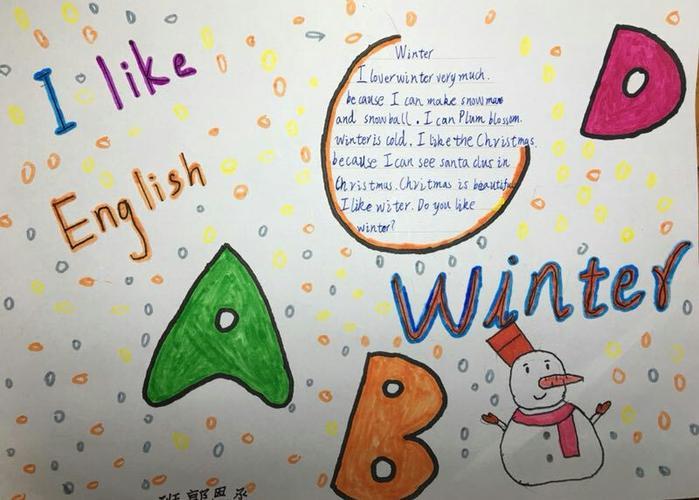 I like
English
Winter
I lover winter very much.
because I can make snowman
and snowball. I can Plum blossom.
winter is cold. I like the Christmas
because I can see santa clus in
Christmas. Chritmas is beautiful
I like witer. Do you like
winter?
D
Winter
A
B